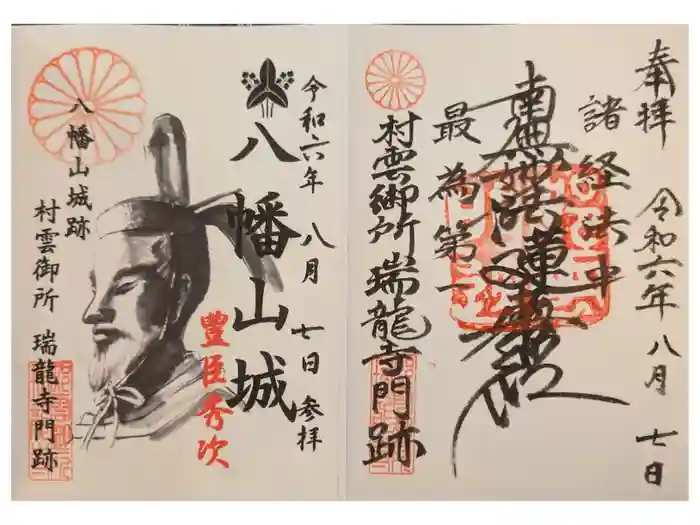 奉拝
令和六年八月七日
諸経法中
南無妙法蓮華経
最為第一
村雲御所瑞龍寺門跡
令和六年八月七日参拝
八幡山城
豊臣秀次
八幡山城跡
村雲御所
瑞龍寺門跡